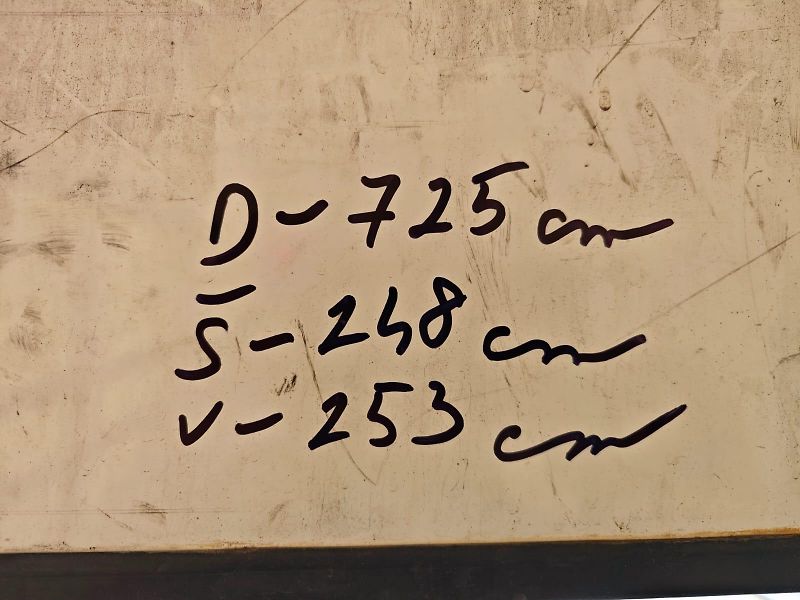 D - 725 cm
Š - 248 cm
V - 253 cm